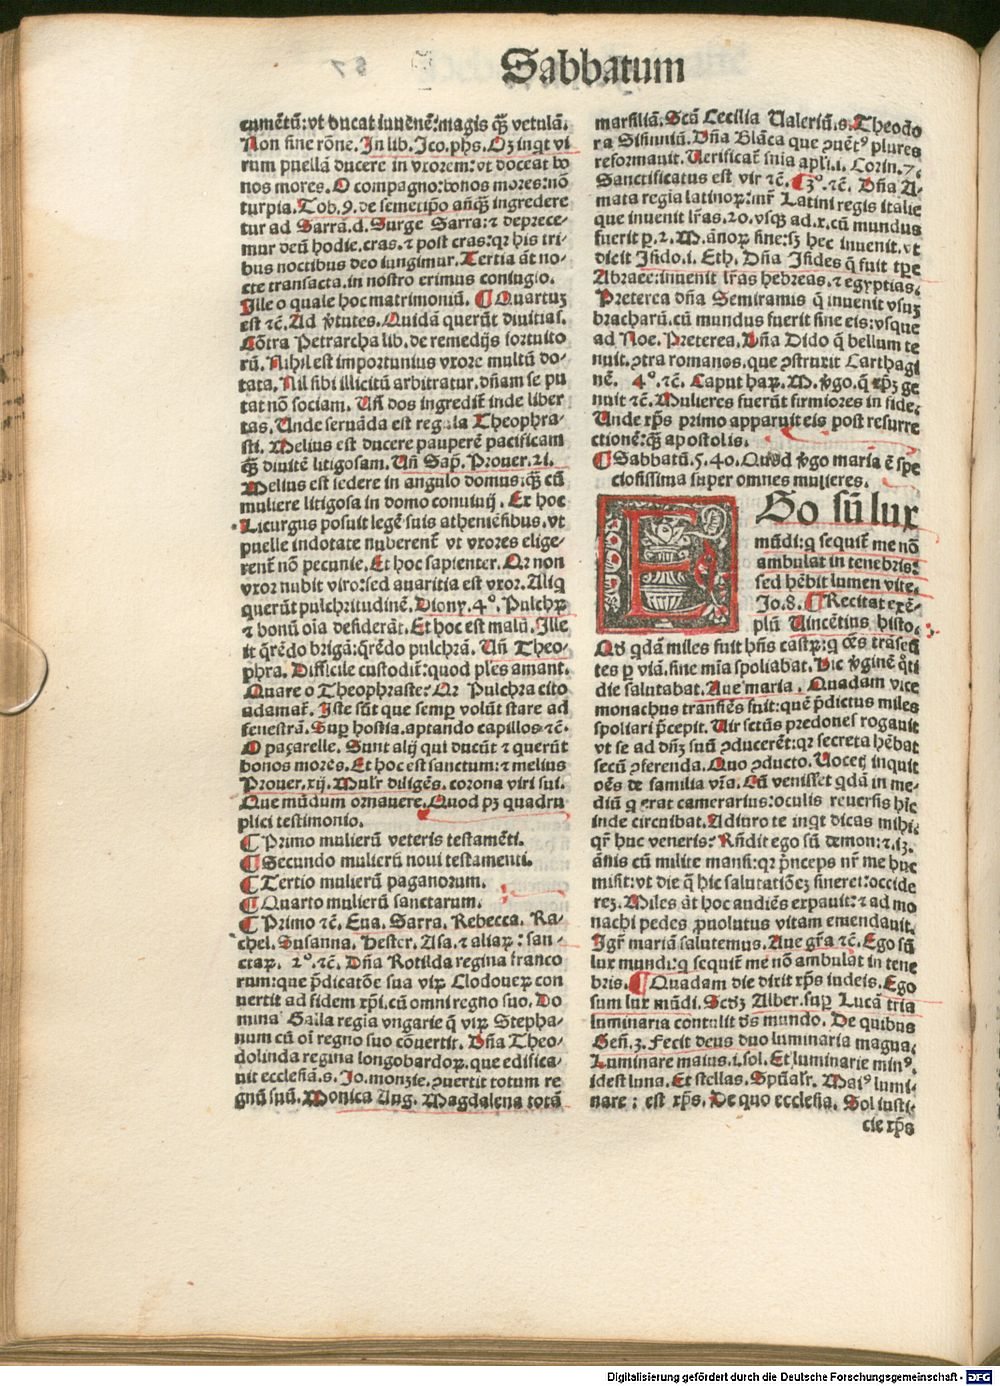 Sabbatum
cumētū: vt ducat iuuenē: magis q̄ȝ vetulā.
Non sine rōne. In lib. Ico. phs. Oȝ inqt vi
rum puellā ducere in vxorem: vt doceat bo
nos mores. O compagno: bonos mores: nō
turpia. Tob. 9. de semetip̄o anq̄ȝ ingredere
tur ad Sarrā. d. Surge Sarra: ⁊ deprece-
mur deū hodie. cras. ⁊ post cras: qꝛ his tri-
bus noctibus deo iungimur. Tertia āt no-
cte transacta. in nostro erimus coniugio.
Ille o quale hoc matrimoniū. ¶ Quartuȝ
est ⁊c̄. Ad v̓tutes. Quidā querūt diuitias.
Cōtra Petrarcha lib. de remedijs fortuito
rū. Nihil est importunius vxore multū do-
tata. Nil sibi illicitū arbitratur. dn̄am se pu
tat nō sociam. Un̄ dos ingredit̄ inde liber
tas. Unde seruāda est regula Theophra-
sti. Melius est ducere pauperē pacificam
q̄ȝ diuitē litigosam. Un̄ Sap̄. Prouer. 21.
Melius est sedere in angulo domus: q̄ȝ cū
muliere litigosa in domo conuiuij. Ex hoc
Licurgus posuit legē suis atheniēsibus. vt
puelle indotate nuberent̄ vt vxores elige-
rent̄ nō pecunie. Et hoc sapienter. Qꝛ non
vxor nubit viro: sed auaritia est vxor. Aliq
querūt pulchritudinē. Diony. 4°. Pulchꝝ
⁊ bonū oīa desiderāt. Et hoc est malū. Ille
it q̄rēdo brigā: q̄rēdo pulchrā. Un̄ Theo-
phra. Difficile custodit̄: quod ples amant.
Quare o Theophraste? Qꝛ Pulchra cito
adamat̄. Iste sūt que semꝑ volūt stare ad
fenestrā. Suꝑ hostia. aptando capillos ⁊c̄.
O paçarelle. Sunt alij qui ducūt ⁊ querūt
bonos mores. Et hoc est sanctum: ⁊ melius
Prouer. xij. Mulr̄ diligēs. corona viri sui.
Que mūdum ornauere. Quod pȝ quadru
plici testimonio.
¶ Primo mulierū veteris testamēti.
¶ Secundo mulierū noui testamenti.
¶ Tertio mulierū paganorum.
¶ Quarto mulierū sanctarum.
¶ Primo ⁊c̄. Eua. Sarra. Rebecca. Ra-
chel. Susanna. Hester. Asa. ⁊ aliaꝝ: san-
ctaꝝ. 2°. ⁊c̄. Dn̄a Rotilda regina franco
rum: que p̄dicatōe sua viꝝ Clodoueꝝ con
uertit ad fidem xp̄i. cū omni regno suo. Do
mina Galla regia vngarie q̄ viꝝ Stepha-
num cū oī regno suo cōuertit. Dn̄a Theo-
dolinda regina longobardoꝝ. que edifica-
uit ecclesiā. s. Jo. monzie. ꝯuertit totum re
gnū suū. Monica Aug. Magdalena totā
marsiliā. Scā Cecilia Ualeriū. s. Theodo
ra Sisinniū. Dn̄a Blāca que ꝯuēt° plures
reformauit. Uerificat̄ sn̄ia apl̄i. i. Corin. 7.
Sanctificatus est vir ⁊c̄. ¶ 3°. ⁊c̄. Dn̄a A-
mata regia latinoꝝ: mr̄ Latini regis italie
que inuenit lr̄as. 20. vsqȝ ad. x. cū mundus
fuerit ꝑ. 2. M. ānoꝝ sine: sȝ hec inuenit. vt
dicit Isido. i. Eth. Dn̄a Isides q̄ fuit tꝑe
Abraee: inuenit lr̄as hebreas. ⁊ egyptias.
Preterea dn̄a Semiramis q̄ inuenit vsuȝ
bracharū. cū mundus fuerit sine eis: vsque
ad Noe. Preterea. Dn̄a Dido q̄ bellum te
nuit. ꝯtra romanos. que ꝯstruxit Carthagi
nē. 4°. ⁊c̄. Caput haꝝ. M. v̓go. q̄ xp̄ȝ ge
nuit ⁊c̄. Mulieres fuerūt firmiores in fide.
Unde xp̄s primo apparuit eis post resurre
ctionē: q̄ȝ apostolis.
¶ Sabbatū. 5. 40. Quod v̓go maria ē spe
ciosissima super omnes mulieres.
EGo sū lux
mūdi: q sequit̄ me nō
ambulat in tenebris:
sed hēbit lumen vite.
Jo. 8. ¶ Recitat exē-
plū Uincētius histo.
Qđ qdā miles fuit hn̄s castꝝ: q oēs trāseū
tes ꝑ viā. sine mīa spoliabat. Hic v̓ginē q̄ti
die salutabat. Aue maria. Quadam vice
monachus trāsiēs fuit: quē p̄dictus miles
spoliari p̄cepit. Uir sctūs predones rogauit
vt se ad dn̄ȝ suū ꝓducerēt: qꝛ secreta hēbat
secū ꝓferenda. Quo ꝓducto. Uocetȝ inquit
oēs de familia vr̄a. Cū venisset qdā in me-
diū q erat camerarius: oculis reuersis hīc
inde circuibat. Adiuro te inqt dicas mihi.
qr̄ huc veneris? Rn̄dit ego sū demon: ⁊. 13.
ānis cū milite mansi: qꝛ p̄nceps nr̄ me huc
misit: vt die q̄ hic salutatiōeȝ sineret: occide
reȝ. Miles āt hoc audiēs expauit: ⁊ ad mo
nachi pedes ꝓuolutus vitam emendauit.
Igr̄ mariā salutemus. Aue gr̄a ⁊c̄. Ego sū
lux mundi: q sequit̄ me nō ambulat in tene
bris. ¶ Quadam die dixit xp̄s iudeis. Ego
sum lux mūdi. Scdȝ Alber. suꝑ Lucā tria
luminaria contulit de̓s mundo. De quibus
Gen̄. 3. Fecit deus duo luminaria magna.
Luminare maius. i. sol. Et luminarie min°.
idest luna. Et stellas. Spūalr̄. Mai° lumi-
nare: est xp̄s. De quo ecclesia. Sol iusti-
cie xp̄s
Digitalisierung gefördert durch die Deutsche Forschungsgemeinschaft - DFG